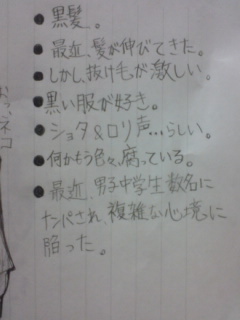 ●黒髪。
●最近、髪が伸びてきた。
●しかし、抜け毛が激しい。
●黒い服が好き。
●ショタ&ロリ声…らしい。
●何かもう色々、腐っている。
●最近、男子中学生数名に
ナンパされ、複雑な心境に
陥った。
ネコ